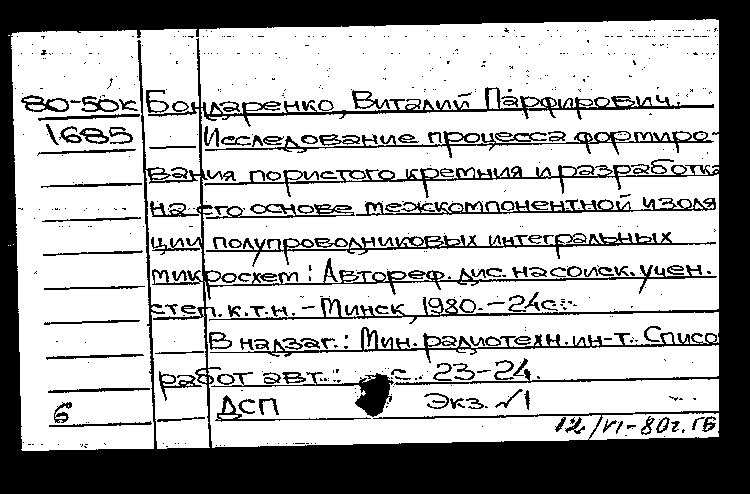 80-50к Бондаренко, Виталий Парфирович.
1685 Исследование процесса формиро-
вания пористого кремния и разработка
на его основе межкомпонентной изоля
ции полупроводниковых интегральных
микросхем: Автореф. дис. на соиск. учен.
степ. к.т.н. - Минск, 1980. - 24с.
В надзаг.: Мин. радиотехн. ин-т. Списо
работ авт.: с. 23-24.
6 ДСП Экз. №1
12/VI-80г. ГБ